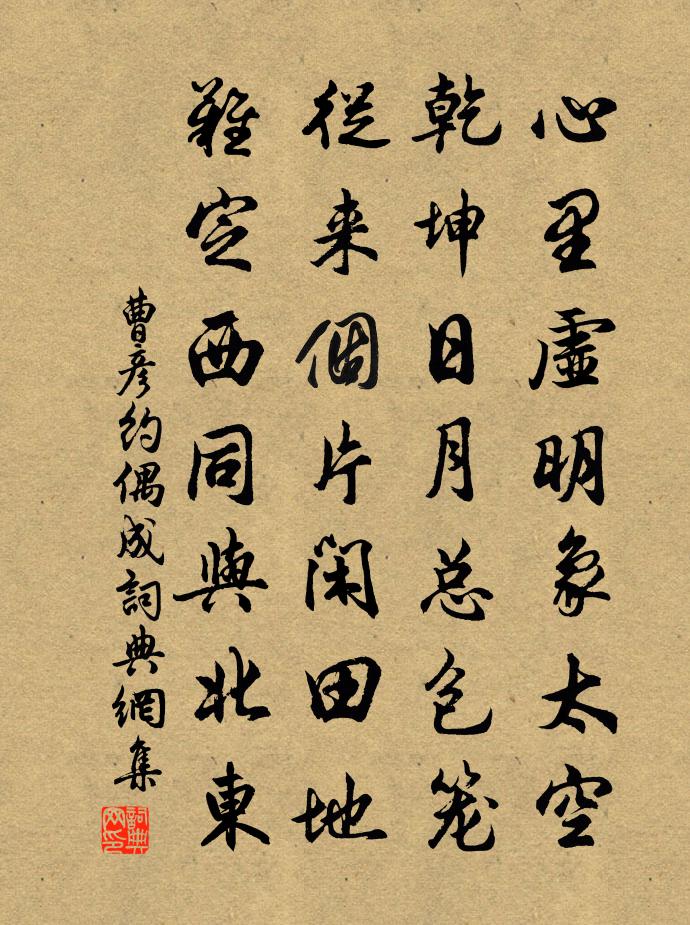 心里虛明象太空
乾坤日月总包笼
從来個片閑田地
難定西同與北東
曹彦約偶成詞典網集
詞典网印